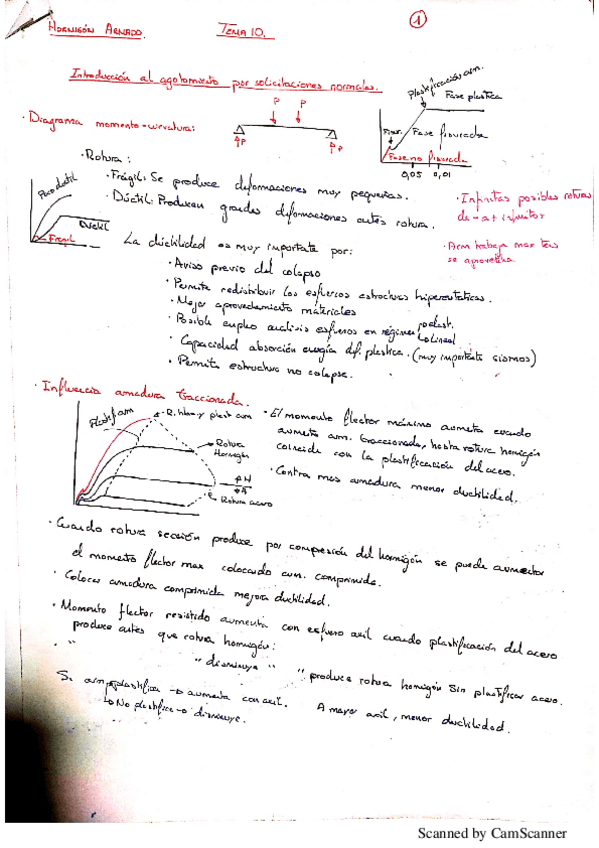 1
HORMIGÓN ARMADO. TEMA 10.
Introducción al agotamiento por solicitaciones normales.
· Diagrama momento-curvatura:
P P
P P
Plastificación arm.
Fase plástica
Fisur.
Fase fisurada
Fase no fisurada
0,05 0,01
· Rotura:
· Frágil: Se produce deformaciones muy pequeñas.
· Dúctil: Producen grandes deformaciones antes rotura.
Poco dúctil
Dúctil
Frágil
· Infinitas posibles roturas
de -∞ a + infinitos
· Arm trabaja más
se aprovecha
La ductilidad es muy importante por:
· Aviso previo del colapso
· Permite redistribuir los esfuerzos estructuras hiperestáticas.
· Mejor aprovechamiento materiales
· Posible empleo análisis esfuerzos en régimen plást.
lineal
· Capacidad absorción energía df. plástica. (muy importante sismos)
· Permite estructura no colapse.
· Influencia armadura traccionada.
Plastf arm
R. hor y plast arm
Rotura
Hormigón
Rotura acero
· El momento flector máximo aumenta cuando
aumenta arm. traccionada, hasta rotura hormigón
coincide con la plastificación del acero.
· Contra mas armadura menor ductilidad.
· Cuando rotura sección produce por compresión del hormigón se puede aumentar
el momento flector max colocando arm. comprimida.
· Colocar armadura comprimida mejora ductilidad.
· Momento flector resistido aumenta con esfuerzo axil cuando plastificación del acero
produce antes que rotura hormigón:
· " " disminuye " " produce rotura hormigón sin plastificar acero.
Si arm plastifica → aumenta con axil. A mayor axil, menor ductilidad.
↳ No plastifica → disminuye.
Scanned by CamScanner